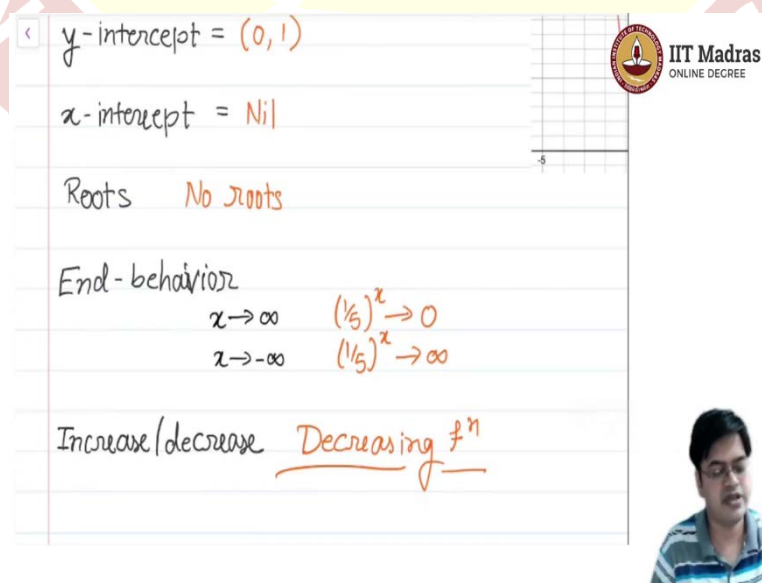 y-intercept = (0, 1)
x-intercept = Nil
Roots No roots
End-behavior
x→∞ (1/5)^x → 0
x→-∞ (1/5)^x → ∞
Increase/decrease Decreasing fⁿ
-5
IIT Madras
ONLINE DEGREE